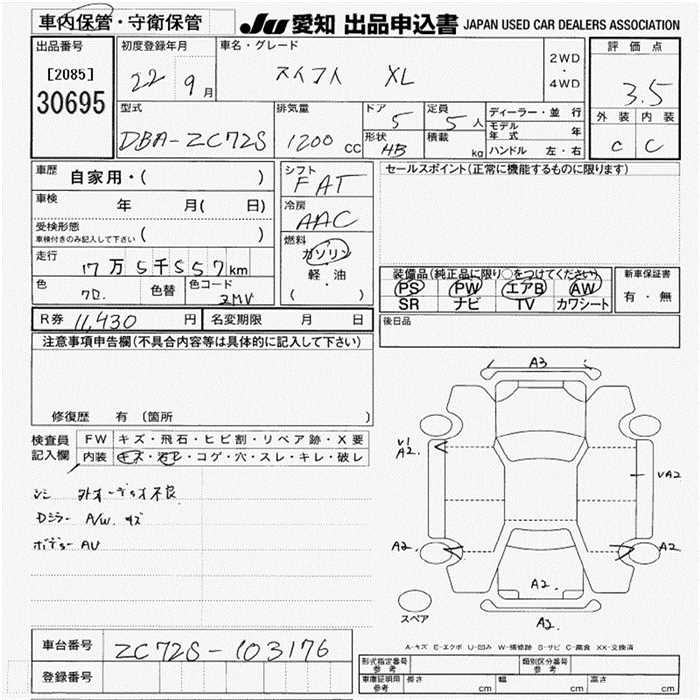 車内保管・守衛保管
JU 愛知 出品申込書 JAPAN USED CAR DEALERS ASSOCIATION
出品番号
[2085]
30695
初度登録年月
22 9月
車名・グレード
スイフト XL
2WD
・
4WD
評価点
3.5
外装 内装
C C
型式
DBA-ZC72S
排気量
1200 CC
ドア
5
形状
HB
定員
5 人
積載
kg
ディーラー・並行
モデル年式 年
ハンドル 左・右
車歴
自家用・( )
車検
年 月( 日)
受検形態
車検付きのみ記入して下さい ( )
走行
17万5千557km
色
クロ.
色替
色コード
ZMV
シフト
FAT
冷房
AAC
燃料
ガソリン
軽・油
( )
セールスポイント(正常に機能するものに限ります)
装備品(純正品に限り○をつけてください)
PS PW エアB AW
SR ナビ TV カワシート
新車保証書
有・無
R券 11,430 円
名変期限 月 日
後日品
注意事項申告欄(不具合内容等は具体的に記入して下さい)
修復歴 有 (箇所 )
検査員
記入欄
FW キズ・飛石・ヒビ割・リペア跡・X要
内装 キズ・汚レ・コゲ・穴・スレ・キレ・破レ
外オーディオ不良
Dミラー A/W. キズ
ボディー AU
A3
V1
A2.
VA2
A2.
A2
A2.
A2
スペア
A-キズ E-エクボ U-凹み W-補修跡 S-サビ C-腐食 XX-交換済
車台番号
ZC72S-103176
登録番号
形式指定番号
参考
類別区分番号
参考
車庫証明用
参考
長さ cm
幅 cm
高さ cm